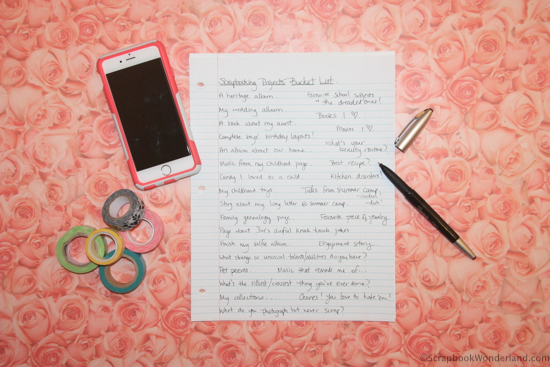 Scrapbooking Projects' Bucket List
A heritage album... Favourite school subjects
+ the dreaded ones!
My wedding album...
Books I ♡.
A book about my aunt...
Movies I ♡.
Complete boys' birthday layouts!
What's your beauty routine?
An album about our home...
Music from my childhood page... Best recipe?
Candy I loved as a child... Kitchen disasters!
My childhood toys... Tales from summer camp,
Story about my long letter to summer camp...
Family genealogy page. Favorite piece of jewelry.
Page about Joe's awful knock knock jokes.
Finish my selfie album... Engagement story...
What strange or unusual talents/abilities do you have?
Pet peeves... Music that reminds me of...
What's the silliest/craziest thing you've ever done?
My collections... Chores! You love to hate 'em!
What do you photograph but never scrap?
©ScrapbookWonderland.com